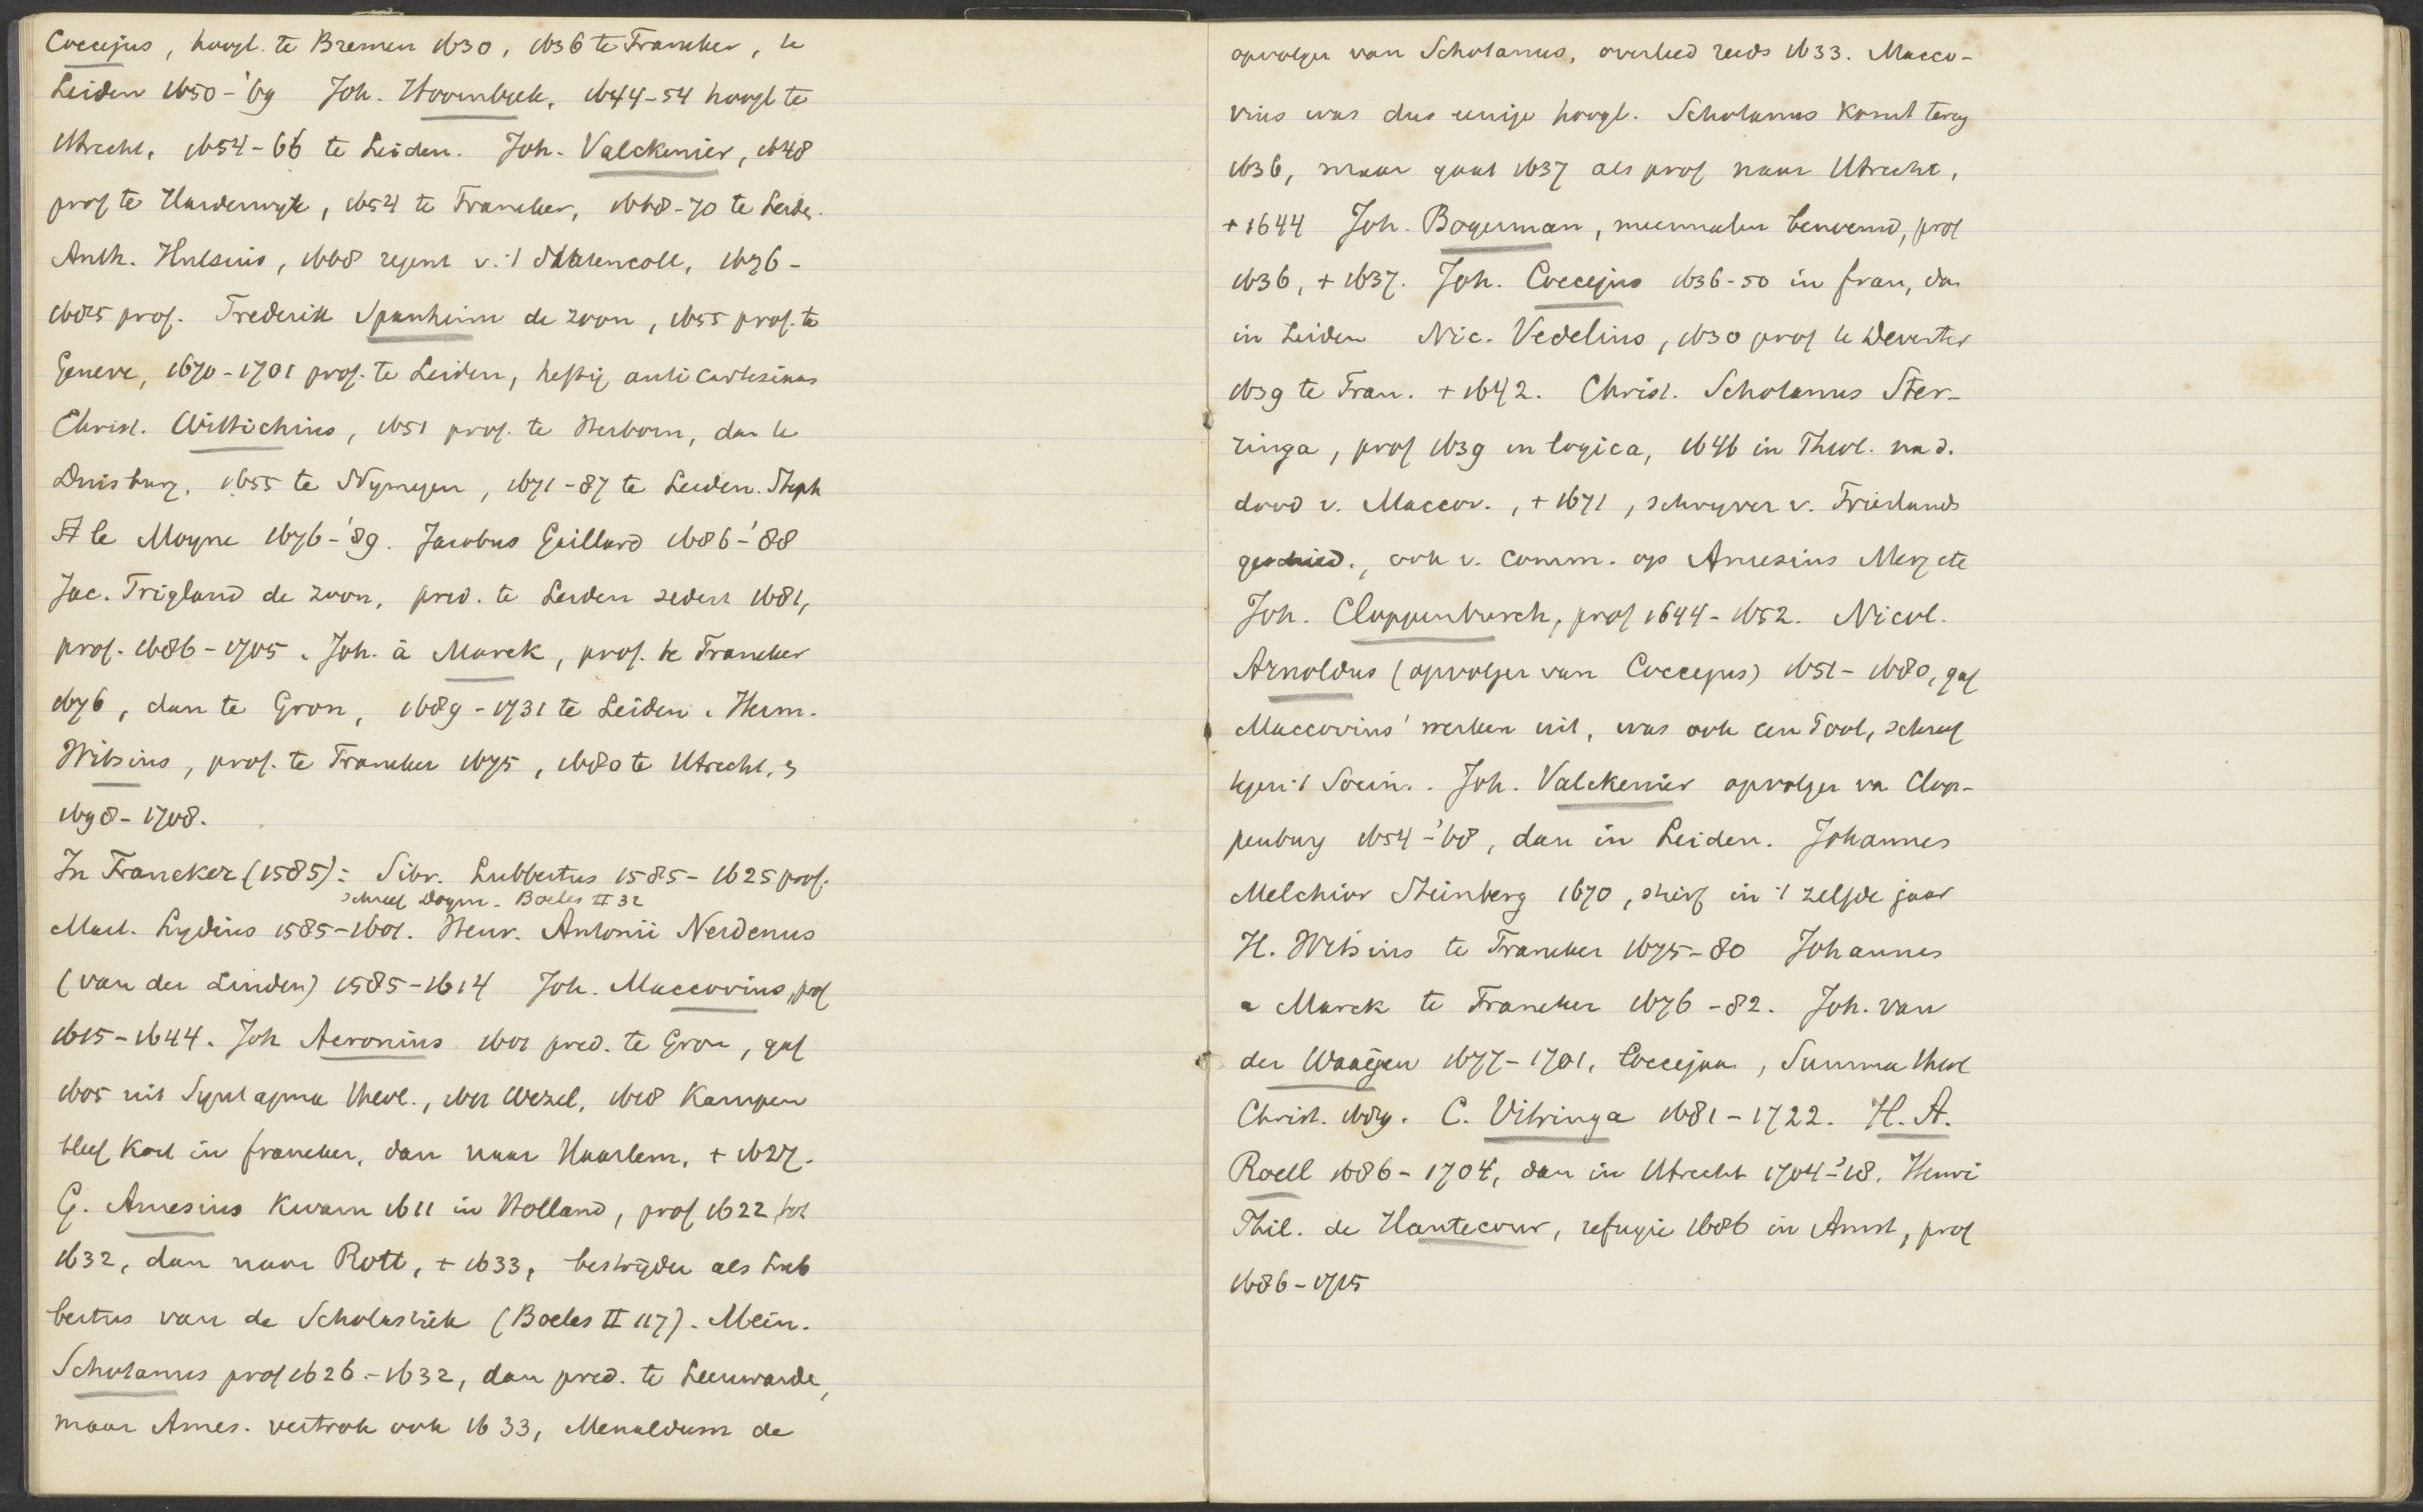 Coccejus, hoogl. te Bremen 1630, 1636 te Franeker, te
Leiden 1650-'69 Joh. Hoornbeek, 1644-54 hoogl te
Utrecht, 1654-66 te Leiden. Joh. Valckenier, 1648
prof te Harderwyk, 1654 te Franeker, 1668-70 te Leide.
Anth. Hulsius, 1668 regent v. 't Statencoll, 1676-
1685 prof. Frederik Spanheim de zoon, 1655 prof. te
Geneve, 1670-1701 prof. te Leiden, heftig anticartesiaan
Christ. Wittichius, 1651 prof. te Herborn, dan te
Duisburg, 1655 te Nymegen, 1671-87 te Leiden. Steph
le Moyne 1676-'89. Jacobus Gaillard 1686-'88
Jac. Trigland de zoon, pred. te Leiden sedert 1681,
prof. 1686-1705. Joh. à Marck, prof. te Franeker
1676, dan te Gron, 1689-1731 te Leiden. Herm.
Witsius, prof. te Franeker 1675, 1680 te Utrecht,
1698-1708.
In Franeker (1585): Sibr. Lubbertus 1585-1625 prof.
schreef Dogm. Boeles II 32
Mart. Lydius 1585-1601. Henr. Antonii Nerdenus
(van der Linden) 1585-1614 Joh. Maccovius, prof
1615-1644. Joh Acronius 1601 pred. te Gron, gaf
1605 uit Syntagma theol., 1611 Wezel, 1618 Kampen
bleef kort in franeker, dan naar Haarlem, + 1627.
G. Amesius kwam 1611 in Holland, prof 1622 tot
1632, dan naar Rott, + 1633, bestrijder als Lub
bertus van de Scholastiek (Boeles II 117). Mein.
Schotanus prof 1626-1632, dan pred. te Leeuwarde,
maar Ames. vertrok ook 1633, Menaldum de
opvolger van Schotanus, overleed reeds 1633. Macco-
vius was dus eenige hoogl. Schotanus komt terug
1636, maar gaat 1637 als prof naar Utrecht,
+ 1644 Joh. Bogerman, meermalen benoemd, prof
1636, + 1637. Joh. Coccejus 1636-50 in fran, dan
in Leiden Nic. Vedelius, 1630 prof te Deventer
1639 te Fran. + 1642. Christ. Schotanus Ster-
ringa, prof 1639 in logica, 1646 in Theol. na d.
dood v. Maccov., + 1671, schryver v. Frieslands
geschied., ook v. comm. op Amesius Merg etc
Joh. Cloppenburch, prof 1644-1652. Nicol.
Arnoldus (opvolger van Coccejus) 1651-1680, gaf
Maccovius' werken uit, was ook een Pool, schreef
tegen 't Socin. . Joh. Valckenier opvolger va Clop-
penburg 1654-'68, dan in Leiden. Johannes
Melchior Steinberg 1670, stierf in 't zelfde jaar
H. Witsius te Franeker 1675-80 Johannes
a Marck te Franeker 1676-82. Joh. van
der Waaijen 1677-1701, Coccejaan, Summa theol
Christ. 1689. C. Vitringa 1681-1722. H. A.
Roell 1686-1704, dan in Utrecht 1704-'18. Henri
Phil. de Hautecour, refugie 1686 in Amst, prof
1686-1715